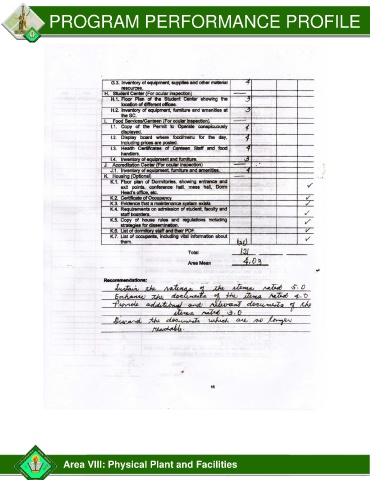 PROGRAM PERFORMANCE PROFILE
G.3. Inventory of equipment, supplies and other material resources. 4
H. Student Center (For ocular inspection)
H.1. Floor Plan of the Student Center showing the location of different offices. 3
H.2. Inventory of equipment, furniture and amenities at the SC. 3
I. Food Services/Canteen (For ocular inspection).
I.1. Copy of the Permit to Operate conspicuously displayed. 4
I.2. Display board where food/menu for the day, including prices are posted. 4
I.3. Health Certificates of Canteen Staff and food handlers. 4
I.4. Inventory of equipment and furniture. 3
J. Accreditation Center (For ocular inspection)
J.1. Inventory of equipment, furniture and amenities. 4
K. Housing (Optional)
K.1. Floor plan of Dormitories, showing entrance and exit points, conference hall, mess hall, Dorm Head's office, etc. ✓
K.2. Certificate of Occupancy ✓
K.3. Evidence that a maintenance system exists ✓
K.4. Requirements on admission of student, faculty and staff boarders. ✓
K.5. Copy of house rules and regulations including strategies for dissemination. ✓
K.6. List of dormitory staff and their PDF. ✓
K.7. List of occupants, including vital information about them. ✓
Total 121
Area Mean 4.03
Recommendations:
Sustain the ratings of the items rated 5.0
Enhance the documents of the items rated 4.0
Provide additional and relevant documents of the
items rated 3.0
Discard the documents which are no longer
readable.
Area VIII: Physical Plant and Facilities